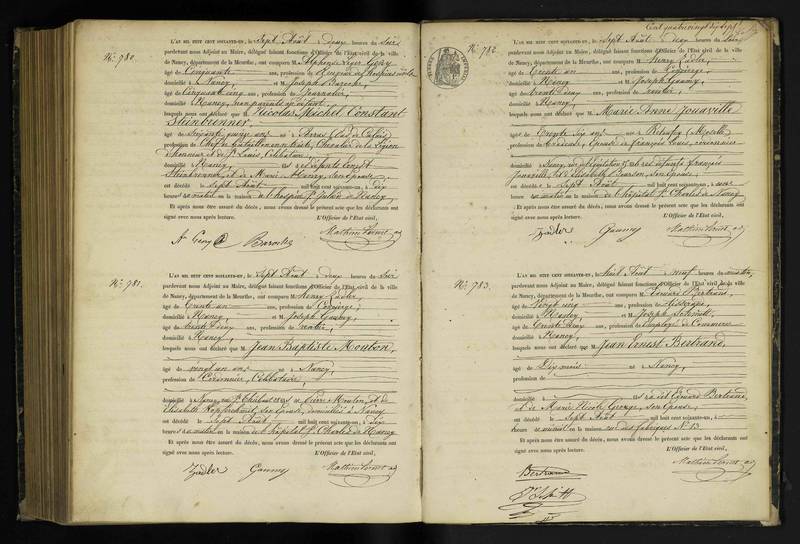 N.º 780.
L'AN MIL HUIT CENT SOIXANTE-UN, le Sept Août à deux heures du soir
pardevant nous Adjoint au Maire, délégué faisant fonctions d'Officier de l'Etat civil de la ville
de Nancy, département de la Meurthe, ont comparu M. Léger
âgé de Cinquante ans, profession de des hospices civils
domicilié à Nancy, et M. Joseph Baroche,
âgé de Cinquante cinq ans, profession de Journalier,
domicilié à Nancy, non parents du défunt
lesquels nous ont déclaré que M. Nicolas Michel Constant
Steinbrenner,
âgé de soixante quinze ans né à Arras (Pas de Calais)
profession de Chef de bataillon en retraite, Chevalier de la Légion
d'honneur et de St Louis, Célibataire,
domicilié à Nancy,
Steinbrenner, et de Marie son épouse
est décédé le Sept Août mil huit cent soixante-un, à dix
heures du matin en la maison de l'hospice St Julien de Nancy.
Et après nous être assuré du décès, nous avons dressé le présent acte que les déclarants ont
signé avec nous après lecture. L'Officier de l'Etat civil,
N.º 781.
L'AN MIL HUIT CENT SOIXANTE-UN, le Sept Août à deux heures du soir
pardevant nous Adjoint au Maire, délégué faisant fonctions d'Officier de l'Etat civil de la ville
de Nancy, département de la Meurthe, ont comparu M. Henry Zadler,
âgé de Trente un ans, profession de Concierge,
domicilié à Nancy, et M. Joseph Gaunny,
âgé de trente deux ans, profession de rentier,
domicilié à Nancy,
lesquels nous ont déclaré que M. Jean Baptiste Mouton,
âgé de vingt un ans né à Nancy,
profession de Cordonnier, Célibataire,
domicilié à Nancy, de Pierre Mouton, et de
Elisabeth son épouse, domiciliés à Nancy
est décédé le Sept Août mil huit cent soixante-un, à dix
heures du matin en la maison de l'hôpital St Charles de Nancy
Et après nous être assuré du décès, nous avons dressé le présent acte que les déclarants ont
signé avec nous après lecture. L'Officier de l'Etat civil,
Zadler Gaunny
Cent quatre vingt dix Sept
N.º 782.
L'AN MIL HUIT CENT SOIXANTE-UN, le Sept Août à deux heures du soir
pardevant nous Adjoint au Maire, délégué faisant fonctions d'Officier de l'Etat civil de la ville
de Nancy, département de la Meurthe, ont comparu M. Henry Zadler,
âgé de Trente un ans, profession de Concierge,
domicilié à Nancy, et M. Joseph Gaunny,
âgé de trente deux ans, profession de rentier,
domicilié à Nancy,
lesquels nous ont déclaré que M. Marie Anne Jouaville
âgé de Trente six ans née à (Moselle)
profession de épouse de François Louis, cordonnier
domicilié à Nancy, François
Jouaville, et d'Elisabeth son épouse,
est décédé le Sept Août mil huit cent soixante-un, à onze
heures du matin en la maison de l'hôpital St Charles de Nancy
Et après nous être assuré du décès, nous avons dressé le présent acte que les déclarants ont
signé avec nous après lecture. L'Officier de l'Etat civil,
Zadler Gaunny
N.º 783.
L'AN MIL HUIT CENT SOIXANTE-UN, le huit Août à neuf heures du matin,
pardevant nous Adjoint au Maire, délégué faisant fonctions d'Officier de l'Etat civil de la ville
de Nancy, département de la Meurthe, ont comparu M. Edouard Bertrand,
âgé de Vingt cinq ans, profession de
domicilié à Nancy, et M. Joseph Schmitt,
âgé de Trente deux ans, profession de Employé de Commerce
domicilié à Nancy,
lesquels nous ont déclaré que M. Jean Ernest Bertrand,
âgé de Dix mois né à Nancy,
profession de
domicilié à Edouard Bertrand,
et de Marie Nicole George, son épouse,
est décédé le Sept Août mil huit cent soixante-un, à
heures en la maison rue des fabriques N.º 13.
Et après nous être assuré du décès, nous avons dressé le présent acte que les déclarants ont
signé avec nous après lecture. L'Officier de l'Etat civil,
Bertrand